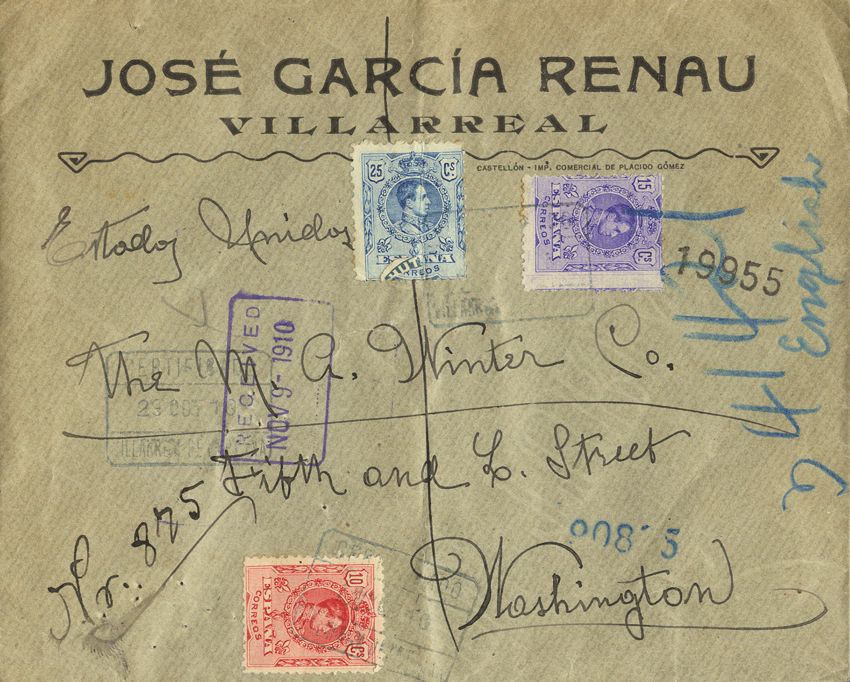 JOSÉ GARCÍA RENAU
VILLARREAL
CASTELLÓN - IMP. COMERCIAL DE PLACIDO GÓMEZ
25 Cs
ESPAÑA
CORREOS
15 Cs
ESPAÑA
CORREOS
Estados Unidos
19955
English
The M. A. Winter Co.
RECEIVED
NOV 9 - 1910
CERTIFICADO
23 OCT 10
Fifth and L. Street
Nr. 875
Washington
10 Cs
ESPAÑA
CORREOS